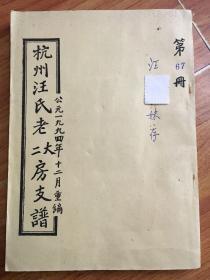 第67冊
汪
妹存
公元一九九四年十二月重編
杭州汪氏老大二房支譜